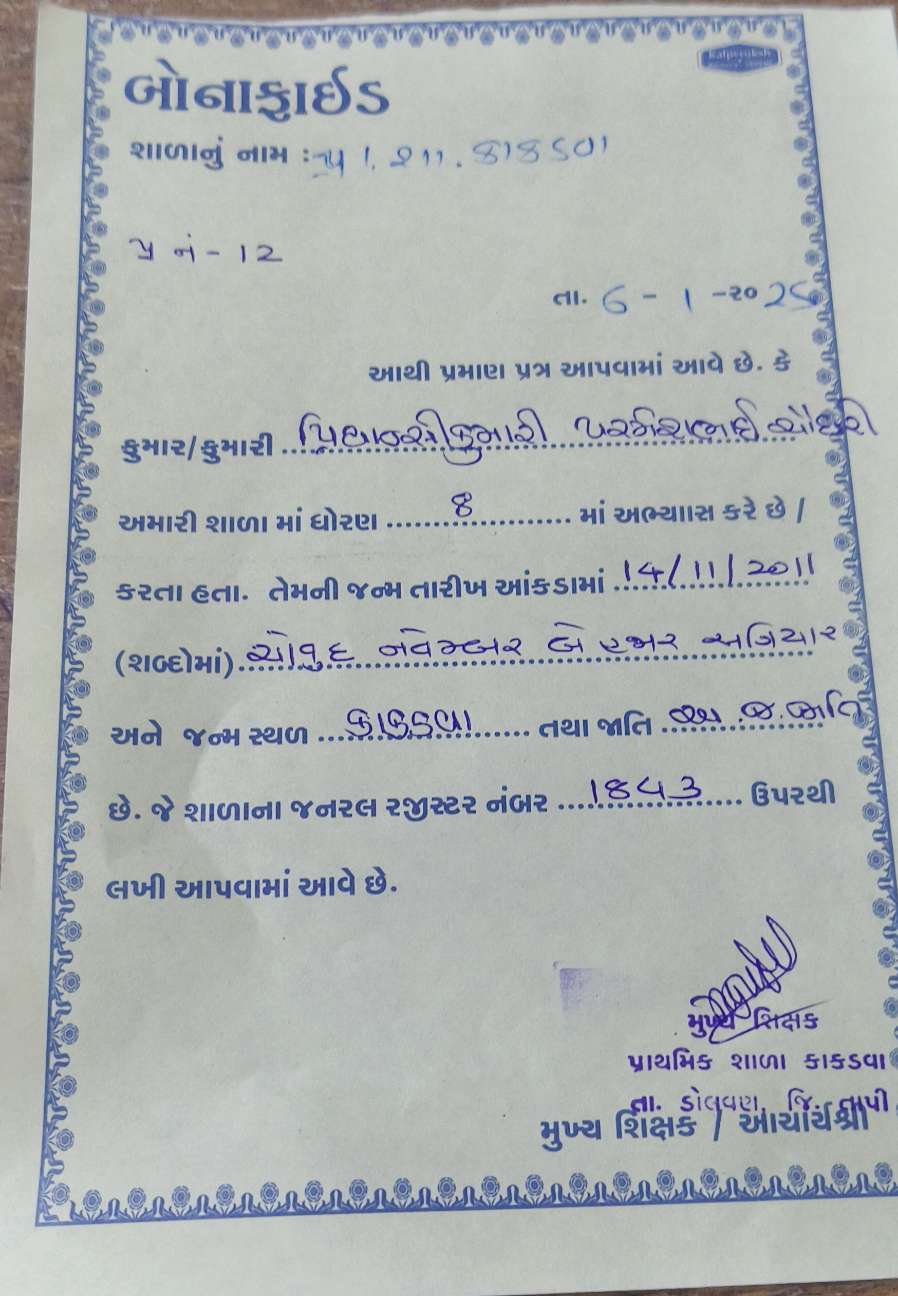 Kalpvruksh
બોનાફાઈડ
શાળાનું નામ : પ્રા. શા. કાકડવા
પ્ર નં - 12
તા. 6 - 1 -૨૦25
આથી પ્રમાણ પત્ર આપવામાં આવે છે. કે
કુમાર/કુમારી ચૌધરી
અમારી શાળા માં ધોરણ 8 માં અભ્યાસ કરે છે /
કરતા હતા. તેમની જન્મ તારીખ આંકડામાં 14/11/2011
(શબ્દોમાં) ચૌવુદ નવેમ્બર બે હજાર અગિયાર
અને જન્મ સ્થળ કાકડવા તથા જાતિ અ.જ.જાતિ
છે. જે શાળાના જનરલ રજીસ્ટર નંબર 1843 ઉપરથી
લખી આપવામાં આવે છે.
મુખ્ય શિક્ષક
પ્રાથમિક શાળા કાકડવા
તા. ડોલવણ, જિ. તાપી
મુખ્ય શિક્ષક / આચાર્યશ્રી